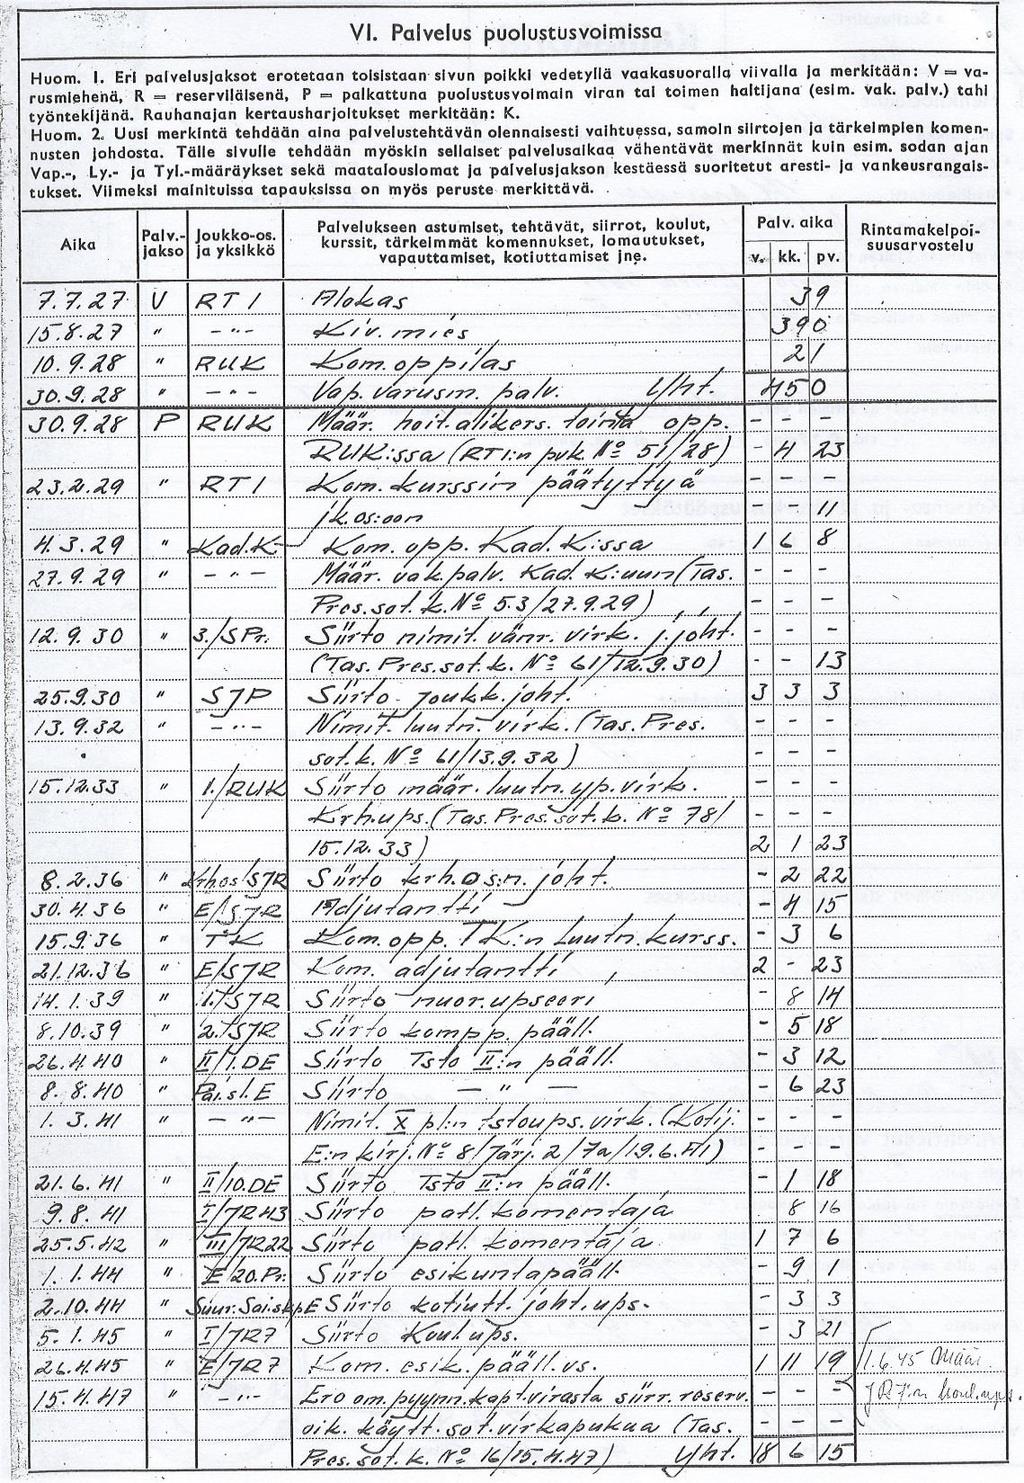 VI. Palvelus puolustusvoimissa
Huom. 1. Eri palvelusjaksot erotetaan toisistaan sivun poikki vedetyllä vaakasuoralla viivalla ja merkitään: V = va-
rusmiehenä, R = reserviläisenä, P = palkattuna puolustusvoimain viran tai toimen haltijana (esim. vak. palv.) tahi
työntekijänä. Rauhanajan kertausharjoitukset merkitään: K.
Huom. 2. Uusi merkintä tehdään aina palvelustehtävän olennaisesti vaihtuessa, samoin siirtojen ja tärkeimpien komen-
nusten johdosta. Tälle sivulle tehdään myöskin sellaiset palvelusaikaa vähentävät merkinnät kuin esim. sodan ajan
Vap.-, Ly.- ja Tyl.-määräykset sekä maatalouslomat ja palvelusjakson kestäessä suoritetut aresti- ja vankeusrangais-
tukset. Viimeksi mainituissa tapauksissa on myös peruste merkittävä.
Aika Palv.-jakso Joukko-os. ja yksikkö Palvelukseen astumiset, tehtävät, siirrot, koulut, kurssit, tärkeimmät komennukset, lomautukset, vapauttamiset, kotiuttamiset jne. Palv. aika v. kk. pv. Rintamakelpoisuusarvostelu
7.7.27 V RT 1 Alokas 39
15.8.27 " - " - Kiv. mies 390
10.9.28 " RUK Kom. oppilas 21
30.9.28 " - " - Vap. varusm. palv. Yht. 450
30.9.28 P RUK Määr. hoit. alikers. tointa opp. - - -
RUK:ssa (RT1:n pvk. No 51/28) - 4 23
23.2.29 " RT 1 Kom. kurssin päätyttyä - - -
jk.os:oon 11
4.3.29 " Kad.K. Kom. opp. Kad. K:ssa 1 6 8
27.9.29 " - " - Määr. vak. palv. Kad. K:uun (Tas. - - -
Pres. sot. k. No 53/27.9.29) - - -
12.9.30 " 3./SPr. Siirto nimit. vänr. virk. j. joht. - - -
(Tas. Pres. sot. k. No 61/12.9.30) - - 13
25.9.30 " SJP Siirto joukk. joht. 3 3 3
13.9.32 " - " - Nimit. luutn. virk. (Tas. Pres. - - -
sot. k. No 61/13.9.32) - - -
15.12.33 " 1./RUK Siirto määr. luutn. yp. virk. - - -
Krh. ups. (Tas. Pres. sot. k. No 78/ - - -
15.12.33) 2 1 23
8.2.36 " Krh.os/SJR Siirto krh.os:n joht. - 2 22
30.4.36 " E/SJR Adjutantti - 4 15
15.9.36 " TK Kom. opp. TK:n Luutn. kurss. - 3 6
21.12.36 " E/SJR Kom. adjutantti 2 - 23
14.1.39 " 1./SJR Siirto nuor. upseeri - 8 14
8.10.39 " 2./SJR Siirto kompp. pääll. - 5 18
26.4.40 " II/1.DE Siirto Tsto II:n pääll. - 3 12
8.8.40 " Päi.sl.E Siirto - " - - 6 23
1.3.41 " - " - Nimit. X pl:n tstoups. virk. (Kotij. - - -
E:n kirj. No 8/Järj. 2/7a/19.6.41) - - -
21.6.41 " II/10.DE Siirto Tsto II:n pääll. - 1 18
9.8.41 " I/JR43 Siirto patl. komentaja 8 16
25.5.42 " III/JR22 Siirto patl. komentaja 1 7 6
1.1.44 " E 20.Pr. Siirto esikuntapääll. - 9 1
2.10.44 " Suur.Sai.skpE Siirto kotiutt. joht. ups. - 3 3
5.1.45 " I/JR7 Siirto Koul. ups. - 3 21
26.4.45 " E/JR7 Kom. esik. pääll. vs. 1 11 19 1.6.45 Määr.
15.4.47 " - " - Ero om. pyynn. kapt. virasta siirr. reserv. - - - JR7:n koul. ups.
oik. käytt. sot. virkapukua (Tas. - - -
Pres. sot. k. No 16/15.4.47) Yht. 18 6 15